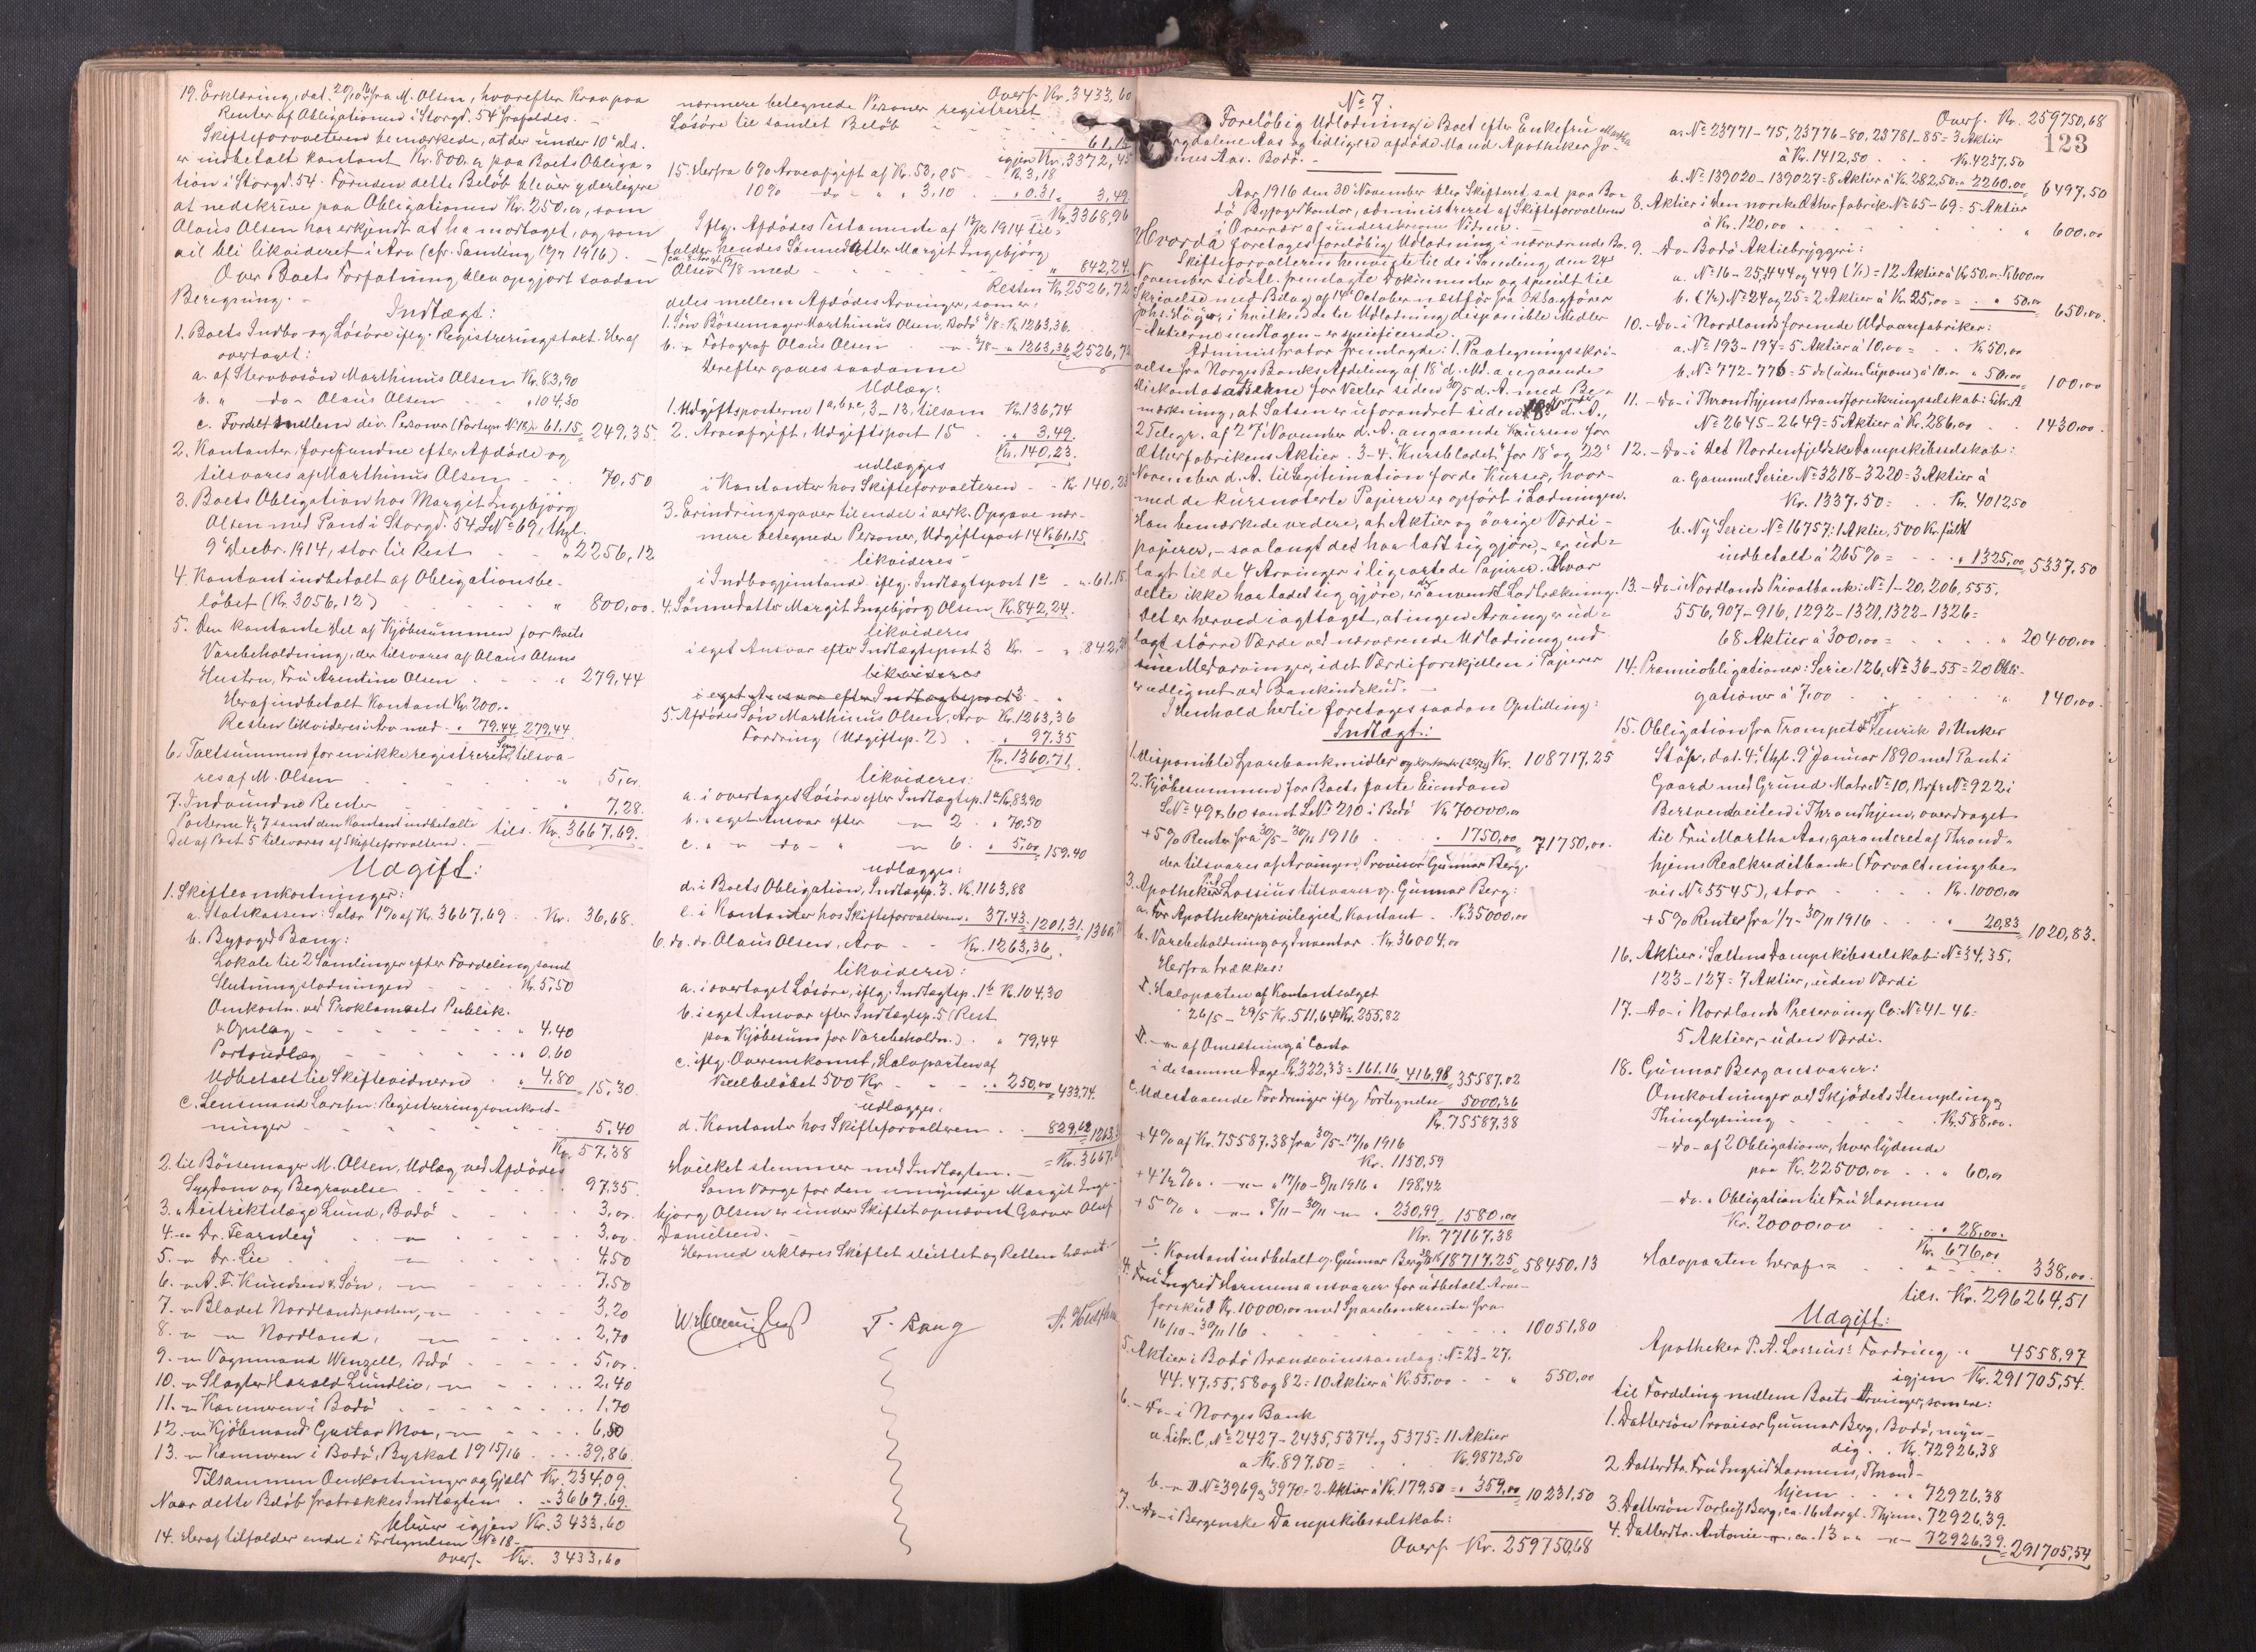 19. Erklæring, dat. 20/10 16 fra M. Olsen, hvorefter Krav paa
Renter af Obligationen i Storgd. 54 frafaldes. -
Skifteforvalteren bemærkede, at der under 10 ds.
er indbetalt kontant Kr. 800.00 paa Boets Obliga-
tion i Storgd. 54. Foruden dette Beløb bliver yderligere
at nedskrive paa Obligationen Kr. 250.00, som
Olaus Olsen har erkjendt at ha modtaget, og som
vil bli likvideret i Arv (cfr. Samling 1916). -
Over Boets Forfatning blev opgjort saadan
Beregning. -
Indtægt:
1. Boets Indbo og Løsøre iflg. Registreringstaxt. Heraf
overtaget:
a. af Stervbosøn Marthinus Olsen Kr. 83,90
b. " -do- Olaus Olsen " 104,30
c. Fordelt mellem div. Personer (Fortegn. No 18) " 61,15 = 249,35.
2. Kontanter, forefundne efter Afdøde og
tilsvares af Marthinus Olsen - - 70,50
3. Boets Obligation hos Margit Ingebjörg
Olsen med Pant i Storgd. 54 LNo 69, thgl.
9 Decbr. 1914, stor til Rest " 2256,12
4. Kontant indbetalt af Obligationsbe-
løbet (Kr. 3056,12) " 800,00.
5. Den kontante Del af Kjöbesummen for Boets
Varebeholdning, der tilsvares af Olaus Olsens
Hustru, Fru Arentine Olsen " 279,44
Heraf indbetalt Kontant Kr. 200.-
Resten likvideres i Arv med " 79,44 279,44
6. Taxtsummen for en ikke registreret tilsva-
res af M. Olsen " 5,00
7. Indvundne Renter " 7,28.
Posterne 4, 7 samt den Kontant indbetalte
Del af Post 5 tilsvares af Skifteforvalteren. tils. Kr. 3667,69.
Udgift:
1. Skifteomkostninger:
a. Statskassen: Salær 1% af Kr. 3667,69 - Kr. 36,68.
b. Byfoged Bang:
Lokale til 2 Samlinger efter Fordeling samt
Slutningslodningen Kr. 5,50
Omkostn. ved Proklamaets Publik.
& Opslag " 4,40
Portoudlæg " 0,60
Udbetalt til Skiftevidnerne " 4,80 = 15,30.
c. Lensmand Larssen: Registreringsomkost-
ninger 5,40
Kr. 57,38
2. til Bössemager M. Olsen, Udlæg ved Afdödes
Sygdom og Begravelse 97,35.
3. " Distriktslæge Lund, Bodö 3,00.
4. " Dr. Fearnley " 3,00
5. " Dr. Lie 4,50
6. " A. F. Knudsen & Sön, " 7,50
7. " Bladet Nordlandsposten, " 3,20
8. " " Nordland, " 2,70
9. " Vognmand Wenzell, Bodö 5,00.
10. " Slagter Harald Lundlie, " 2,40
11. " Kæmneren i Bodö 1,70
12. " Kjöbmand Gustav Moe, " 6,50
13. " Kæmneren i Bodö, Byskat 1915/16 39,86
Tilsammen Omkostninger og Gjæld Kr. 234,09.
Naar dette Belöb fratrækkes Indtægten - 3667,69.
bliver igjen Kr. 3433,60
14. Heraf tilfalder endel i Fortegnelsen No 18 -
overf. Kr. 3433,60
Overf. Kr. 3433,60
nærmere betegnede Personer registreret
Løsøre til samlet Beløb 61,15
igjen Kr. 3372,45
15. Herfra 6% Arveafgift af Kr. 53,05 Kr. 3,18
10% do " " 3,10 " 0.31 = 3,49
Kr. 3368,96
Iflg. Afdødes Testamente af 1914 til-
falder hendes Sønnedatter Margit Ingebjörg
Olsen 2/8 med " 842,24
Resten Kr. 2526,72
deles mellem Afdødes Arvinger, som er:
1. Søn Bössemager Marthinus Olsen, Bodö 3/8 = Kr. 1263,36.
b. " Fotograf Olaus Olsen " 3/8 - " 1263,36 2526,72
Herefter gaves saadanne
Udlæg:
1. Udgiftsposterne 1 a, b & c, 3 - 13, tilsam. Kr. 136,74
2. Arveafgift, Udgiftspost 15 " 3,49.
Kr. 140,23.
udlægges
i Kontanter hos Skifteforvalteren - Kr. 140,23
3. Erindringsgaver til endel i Opgave nær-
mere betegnede Personer, Udgiftspost 14 Kr. 61,15
likvideres
i Indbogjenstande iflg. Indtægtspost 1c " 61,15
4. Sønnedatter Margit Ingebjörg Olsen, Kr. 842,24.
likvideres
i eget Ansvar efter Indtægtspost 3 Kr. - " 842,24
likvideres
i eget Ansvar efter Indtægtspost 3
5. Afdødes Søn Marthinus Olsen, Arv Kr. 1263,36
Fordring (Udgiftsp. 2) " 97,35
Kr. 1360,71
likvideres:
a. i overtaget Løsøre efter Indtægtsp. 1a Kr. 83,90
b. " eget Ansvar efter " 2 " 70,50
c. " " -do- " " 6 " 5,00 = 159,40
udlægges:
d. i Boets Obligation, Indtægtsp. 3. Kr. 1163,88
e. i Kontanter hos Skifteforvalteren " 37,43 = 1201,31 = 1360,71
6. do. do. Olaus Olsen, Arv - Kr. 1263,36.
likvideres:
a. i overtaget Løsøre, iflg. Indtægtsp. 1b Kr. 104,30
b. i eget Ansvar efter Indtægtsp. 5 (Rest
paa Kjöbesum for Varebeholdn.) " 79,44
c. iflg. Overenskomst, Halvparten af
Vexelbeløbet 500 Kr " 250,00 = 433,74.
udlægges:
d. Kontanter hos Skifteforvalteren 829,62 = 1263,36
= Kr. 3667,69
Hvilket stemmer med Indtægten. -
Som Værge for den umyndige Margit Inge-
bjørg Olsen er under Skiftet opnævnt Garver Oluf
Danielsen. -
Hermed erklæres Skiftet sluttet og Retten hævet.
F. Bang
No 7.
Foreløbig Udlodning i Boet efter Enkefru Martha
Magdalene Aas og tidligere afdøde Mand Apotheker Jo-
hannes Aas. Bodö. -
Aar 1916 den 30 November blev Skifteret sat paa Bo-
dö Byfogedkontor, administreret af Skifteforvalteren
i Overvær af underskrevne Vidner. -
Hvorda foretages foreløbig Udlodning i nærværende Bo.
Skifteforvalteren henviste til de i Samling den 24
November sidstl. fremlagte Dokumenter og specielt til
Skrivelse med Bilag af 14 October næstfør fra Sagfører
Johs. Höyer, i hvilken de til Udlodning disponible Midler
- Aktierne undtagen - er specificerede. -
Administrator fremlagde: 1. Paategningsskri-
velse fra Norges Banks Afdeling af 18 d. Md. angaaende
Diskontosatserne for Vexler siden 30/5 d. A. med Be-
mærkning, at Satsen er uforandret siden d. A.,
2 Telegr. af 27 November d. A. angaaende Kursen for
Ætherfabrikens Aktier. 3 - 4. "Kursbladet" for 18 og 22
November d. A. til Legitimation for de Kurser, hvor-
med de kursnoterte Papirer er opført i Lodningen.
Han bemærkede videre, at Aktier og øvrige Værdi-
papirer, - saalangt det har latt sig gjöre, - er ud-
lagt til de 4 Arvinger i ligeartede Papirer. Hvor
dette ikke har ladet sig gjöre, er anvendt Lodtrækning.
Det er herved iagttaget, at ingen Arving er ud-
lagt större Værdi ved nærværende Udlodning end
sine Medarvinger, idet Værdiforskjellen i Papirer
er udlignet ved Bankindskud. -
I Henhold hertil foretages saadan Opstilling:
Indtægt:
1. Disponible Sparebankmidler og Kontanter Kr. 108717,25
2. Kjöbesummen for Boets faste Eiendom
LNo 49 & 60 samt LNo 210 i Bodö Kr. 70000,00
+ 5% Renter fra 30/5 - 30/11 1916 " 1750,00 = 71750,00.
der tilsvares af Arvingen, Provisor Gunnar Berg.
3. Apotheker Lossius tilsvarer v. Gunnar Berg:
a. For Apothekerprivilegiet, Kontant - Kr. 35000,00
b. Varebeholdning og Inventar - Kr. 36004,00
Herfra trækkes:
I. Halvparten af Kontantsalget
26/5 - 29/5 Kr. 511,64 Kr. 255,82
II. -"- af Omsætning à Conto
i de samme Dage Kr. 322,33 = 161,16 = 416,98 = 35587,02
c. Udestaaende Fordringer iflg. Fortegnelse 5000,36
Kr. 75587,38
+ 4% af Kr. 75587,38 fra 30/5 - 17/10 1916
Kr. 1150,59
+ 4 1/2 % " - " - 17/10 - 8/11 1916 " 198,42
+ 5% " - " - 8/11 - 30/11 - " - 230,99 = 1580,00
Kr. 77167,38
÷ Kontant indbetalt v. Gunnar Berg Kr. 18717,25 = 58450,13
4. Fru Ingrid Harmens ansvarer for udbetalt Arve-
forskud Kr. 10000,00 med Sparebankrente fra
16/10 - 30/11 16 10051,80
5. Aktier i Bodö Brændevinssamlag: No 23 - 27.
44, 47, 55, 58 og 82 = 10 Aktier à Kr. 55,00 - " 550,00
6. - do - i Norges Bank
a. Litr. C, No 2427 - 2435, 5374 og 5375 = 11 Aktier
à Kr. 897,50 = Kr. 9872,50
b. - " D No 3969 og 3970 = 2 Aktier à Kr. 179,50 = " 359,00 = 10231,50
7. - do - i Bergenske Dampskibsselskab:
Overf. Kr. 259750,68
123
Overf. Kr. 259750,68
a. No 23771 - 75, 23776 - 80, 23781 - 85 = 3 Aktier
à Kr. 1412,50 Kr. 4237,50
b. No 139020 - 139027 = 8 Aktier à Kr. 282,50 = 2260,00 = 6497,50
8. Aktier i den norske Ætherfabrik No 65 - 69 = 5 Aktier
à Kr. 120,00 " 600,00
9. Do - Bodö Aktiebryggeri:
a. No 16 - 25, 444 og 449 (1/1) = 12 Aktier à Kr. 50,00 Kr. 600,00
b. (1/2) No 24 og 25 = 2 Aktier à Kr. 25,00 = " 50,00 650,00.
10. - Do - i Nordlands forenede Uldvarefabriker:
a. No 193 - 197 = 5 Aktier à 10,00 = Kr. 50,00
b. No 772 - 776 = 5 do (uden Cupons) à 10,00 " 50,00 100,00
11. - do - i Throndhjems Brandforsikringsselskab: Litr. A
No 2645 - 2649 = 5 Aktier à Kr. 286,00 1430,00.
12. - do - i det Nordenfjeldske Dampskibsselskab:
a. Gammel Serie: No 3218 - 3220 = 3 Aktier à
Kr. 1337.50 = Kr. 4012,50
b. Ny Serie No 16757: 1 Aktie, 500 Kr. fuldt
indbetalt à 265% = " 1325,00 = 5337,50
13. - do - i Nordlands Privatbank: No 1 - 20, 206, 555,
556, 907 - 916, 1292 - 1321, 1322 - 1326 =
68 Aktier à 300,00 = " 20400,00
14. Præmieobligationer: Serie 126, No 36 - 55 = 20 Obli-
gationer à 7,00 " 140,00.
15. Obligation fra Trompetist Henrik d. Unker
Stöp, dat. 4, thgl. 9 Januar 1890 med Pant i
Gaard med Grund Matr. No 10, Brfr. No 922 i
Bersvendveiten i Throndhjem, overdraget
til Fru Martha Aas, garanteret af Thrond-
hjems Realkreditbank (Forvaltningsbe-
vis No 5545), stor Kr. 1000,00
+ 5% Renter fra 1/7 - 30/11 1916 " 20,83 = 1020,83.
16. Aktier i Saltens Dampskibsselskab: No 34, 35,
123 - 127 = 7 Aktier, uden Værdi
17. - Do - i Nordlands Preserving Co: No 41 - 46 =
5 Aktier, - uden Værdi.
18. Gunnar Berg ansvarer:
Omkostninger ved Skjödets Stempling og
Thinglysning Kr. 588,00.
- Do - af 2 Obligationer, hver lydende
paa Kr. 22500,00 " 60,00
- Do - " Obligation til Fru Harmens
Kr. 20000,00 " 28,00.
Kr. 676,00
Halvparten heraf = 338,00.
tils. Kr. 296264,51
Udgift:
Apotheker P. A. Lossius' Fordring " 4558,97
igjen Kr. 291705,54.
til Fordeling mellem Boets Arvinger, som er:
1. Dattersön Provisor Gunnar Berg, Bodö, myn-
dig Kr. 72926,38
2. Datterdtr. Fru Ingrid Harmens, Thrond-
hjem 72926,38
3. Dattersön Torleif Berg, ca. 16 Aar gl. Thjem 72926,39.
4. Datterdtr. Antonie - " - ca. 13 " " - " - 72926,39. = 291705,54